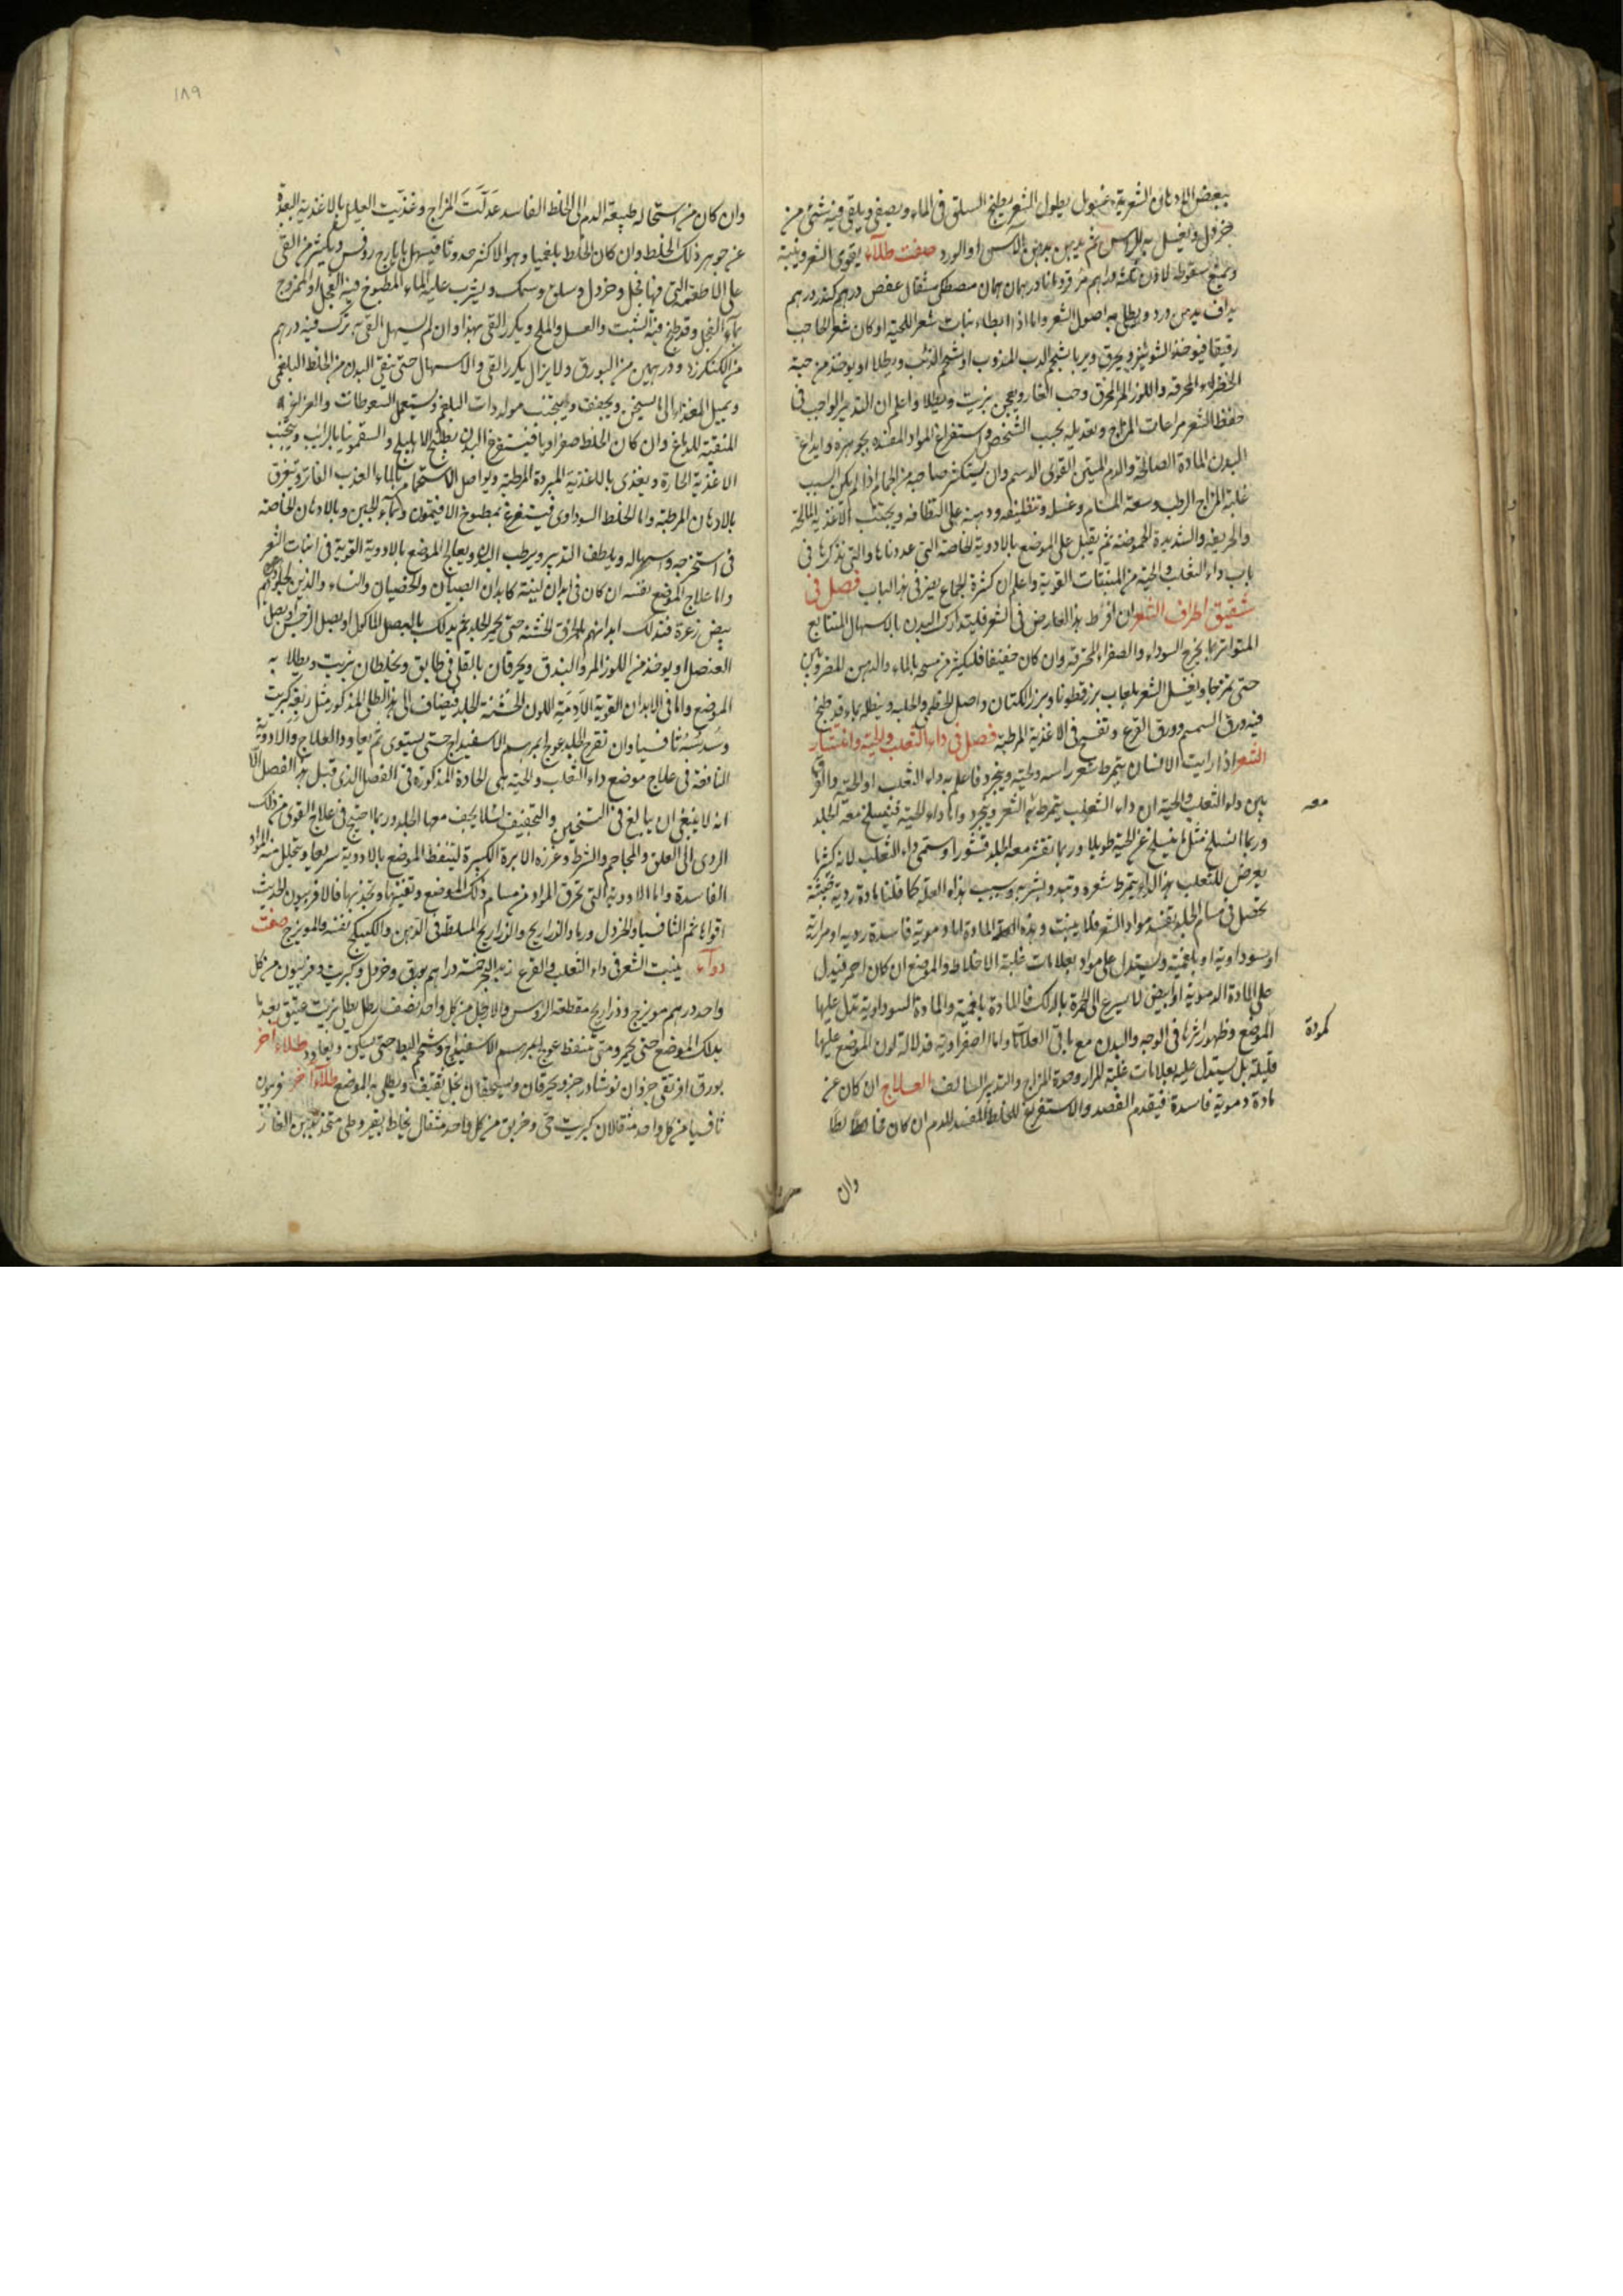 ببعض الادهان الشعرية غسول يطول الشعر يطبخ السلق فى الماء ويصفى ويلقى فيه شئ من
خردل ويغسل به الراس ثم يدهن بدهن الآس او الورد صفت طلآء يقوى الشعر وينبته
ويمنع سقوطه لاذن دراهم درهمان مصطكى مثقال عفص درهم كندر درهم
يداف بدهن ورد ويطلى به اصول الشعر واما اذا ابطاء نبات شعر اللحية او كان شعر الحاجب
رقيقا فيوخذ الشونيز ويحرق ويربا بشحم الدب المذوب او شحم الذئب ويطلا او يوخذ من حبة
الخضراء المحرقه واللوز المر المحرق وحب الغار ويعجن بزيت ويطلا واعلم ان التدبير الواجب فى
حفظ الشعر مراعات المزاج وتعديله بحسب الشخص واستفراغ المواد المفسده بجوهره وايداع
البدن المادة الصالحة والدم المتين القوى الدسم وان يستكثر صاحبه من الحمام اذا لم يكن السبب
غلبة المزاج الرطب وسعة المسام وغسله وتنظيفه ودهنه على النظافه ويجتنب الاغذية المالحة
والحريفه والشديدة الحموضه ثم يقبل على الموضع بالادوية الخاصه التى عددناها والتى نذكرها فى
باب داء الثعلب والحية من المنبتات القوية واعلم ان كثرة الجماع يضر فى هذا الباب فصل فى
شقيق اطراف الشعر ان افرط هذا العارض فى الشعر فليتدارك البدن بالاسهال المتتابع
المتواتر بما يخرج السوداء والصفراء المحترقه وان كان خفيفا فليكثر من مسحه بالماء والدهن المضروبين
حتى يمتزجا ويغسل الشعر بلعاب بزرقطونا وبزر الكتان واصل الخطمى والحلبه وينطله بماء قد طبخ
فيه ورق السمسم وورق القرع وتفسح فى الاغذية المرطبه فصل فى داء الثعلب والحية وانتشار
الشعر اذا رايت الانسان يتمرط شعر راسه ولحيته ويتجرد فاعلم به داء الثعلب او الحية والفرق
بين داء الثعلب والحية ان داء الثعلب يتمرط فيه الشعر ويتجرد واما داء الحية فينسلخ معه الجلد
معه
وربما انسلخ مثل ما ينسلخ عن الحية طويلا وربما تقشر معه الجلد قشورا وسمى داء الثعلب لانه كثيرا
يعرض للثعلب هذا الداء يتمرط شعره وتبدو بشرته وسبب هذه العلة كما قلنا مادة ردية خبيثة
تحصل فى مسام الجلد يفسد مواد الشعر فلا ينبت وهذه المادة اما دموية فاسدة رديه او مرارية
او سوداوية او بلغمية ويستدل على مواد بعلامات غلبة الاخلاط والموضع ان كان احمر فيدل
على المادة الدموية او ابيض لا يسرع الى الحمرة بالدلك فالمادة بلغمية والمادة السوداوية تدل عليها
كمودة
الموضع وظهور اثرها فى الوجه والبدن مع باقى العلامات واما الصفراوية فدلالة لون الموضع عليها
قليلة بل يستدل عليه بعلامات غلبة المرار وحدة المزاج والتدبير السالف العلاج ان كان عن
مادة دموية فاسدة فيقدم الفصد والاستفراغ للخلط المفسد للدم ان كان مخالطا
وان
١٨٩
وان كان من استحاله طبيعة الدم الى الخلط الفاسد عدلت المزاج وغذيت العليل بالاغذية البعيدة
عن جوهر ذلك الخلط وان كان الخلط بلغميا وهو الاكثر حدوثا فيسهل بايارج روفس ويكثر من القئ
على الاطعمة التى فيها فجل وخردل وسلق وسمك ويشرب عليه الماء المطبوخ فيه الفجل او الممزوج
بماء الفجل وقد طبخ فيه الشبت والعسل والملح ويكرر القئ بهذا وان لم يسهل القئ ترك فيه درهم
من الكنكرزد ودرهمين من البورق ولا يزال يكرر القئ والاسهال حتى ينقى البدن من الخلط البلغمى
ويميل الغذاء الى ما يسخن ويجفف ويجتنب مولدات البلغم ويستعمل السعوطات والغراغر
المنقية للدماغ وان كان الخلط صفراويا فيستفرغ البدن بطبيخ الاهليلج والسقمونيا بالرائب ويتجنب
الاغذية الحارة ويغذى بالاغذية المبردة المرطبه ويواصل الاستحمام بالماء العذب الفاتر ويغرق
بالادهان المرطبه واما الخلط السوداوى فيستفرغ بمطبوخ الافتيمون وبماء الجبن وبالادهان الخاصه
فى استخرجه واسهاله ويلطف التدبير ويرطب البدن ويعالج الموضع بالادوية القوية فى انبات الشعر
واما علاج الموضع نفسه ان كان فى ابدان لينة كابدان الصبيان والخصيان والنساء والذين جلودهم
بيض زعرة فتدلك ابدانهم بالخرق الخشنه حتى يحمر الجلد ثم يدلك بالبصل الماكول او بصل النرجس او بصل
العنصل او يوخذ من اللوز المر والبندق ويحرقان بالقلى فى طابق ويخلطان بزيت ويطلا به
الموضع واما فى الابدان القوية الآدمية اللون الخشنة الجلد فيضاف الى هذا الطلى المذكور مثل ربعه كبريت
وسدسه ثافسيا وان تقرح الجلد عولج بمرهم الاسفيداج حتى يستوى ثم يعاود العلاج والادوية
النافعة فى علاج موضع داء الثعلب والحية هى الحادة المذكورة فى الفصل الذى قبل هذا الفصل الا
انه لا ينبغى ان يبالغ فى التسخين والتجفيف لئلا يجف معها الجلد وربما احتيج فى علاج القوى من ذلك
الردى الى العلق والمحاجم والشرط وغرزه الابرة الكبيرة ليتنفط الموضع بالادوية سريعا ويتحلل منه المواد
الفاسدة واما الادوية التى تخرق المواد من مسام ذلك الموضع وتفنيها وتجذبها فالافربيون الحديث
اقواها ثم الثافسيا والخردل ورماد الذراريح والذراريح المسلطة فى الدهن والكبيكج نفسه والمويزج صفت
دوآء ينبت الشعر فى داء الثعلب والقرع زبد البحر خمسة دراهم بورق وخردل وكبريت وفربيون من كل
واحد درهم مويزج وذراريح مقطعة الروس والارجل من كل واحد نصف رطل يطلى بزيت عتيق بعد ما
يدلك الموضع حتى يحمر ومتى تنفط عولج بمرهم الاسفيداج وشحم البط حتى يسكن ويعاود طلاء اخر
بورق افريقى جزوان نوشادر جزو يحرقان ويسحقان بخل ثقيف ويطلى به الموضع طلآء آخر فربيون
ثافسيا من كل واحد مثقالان كبريت حى وخربق من كل واحد مثقال يخلط بقيروطى متخذ بدهن الغار